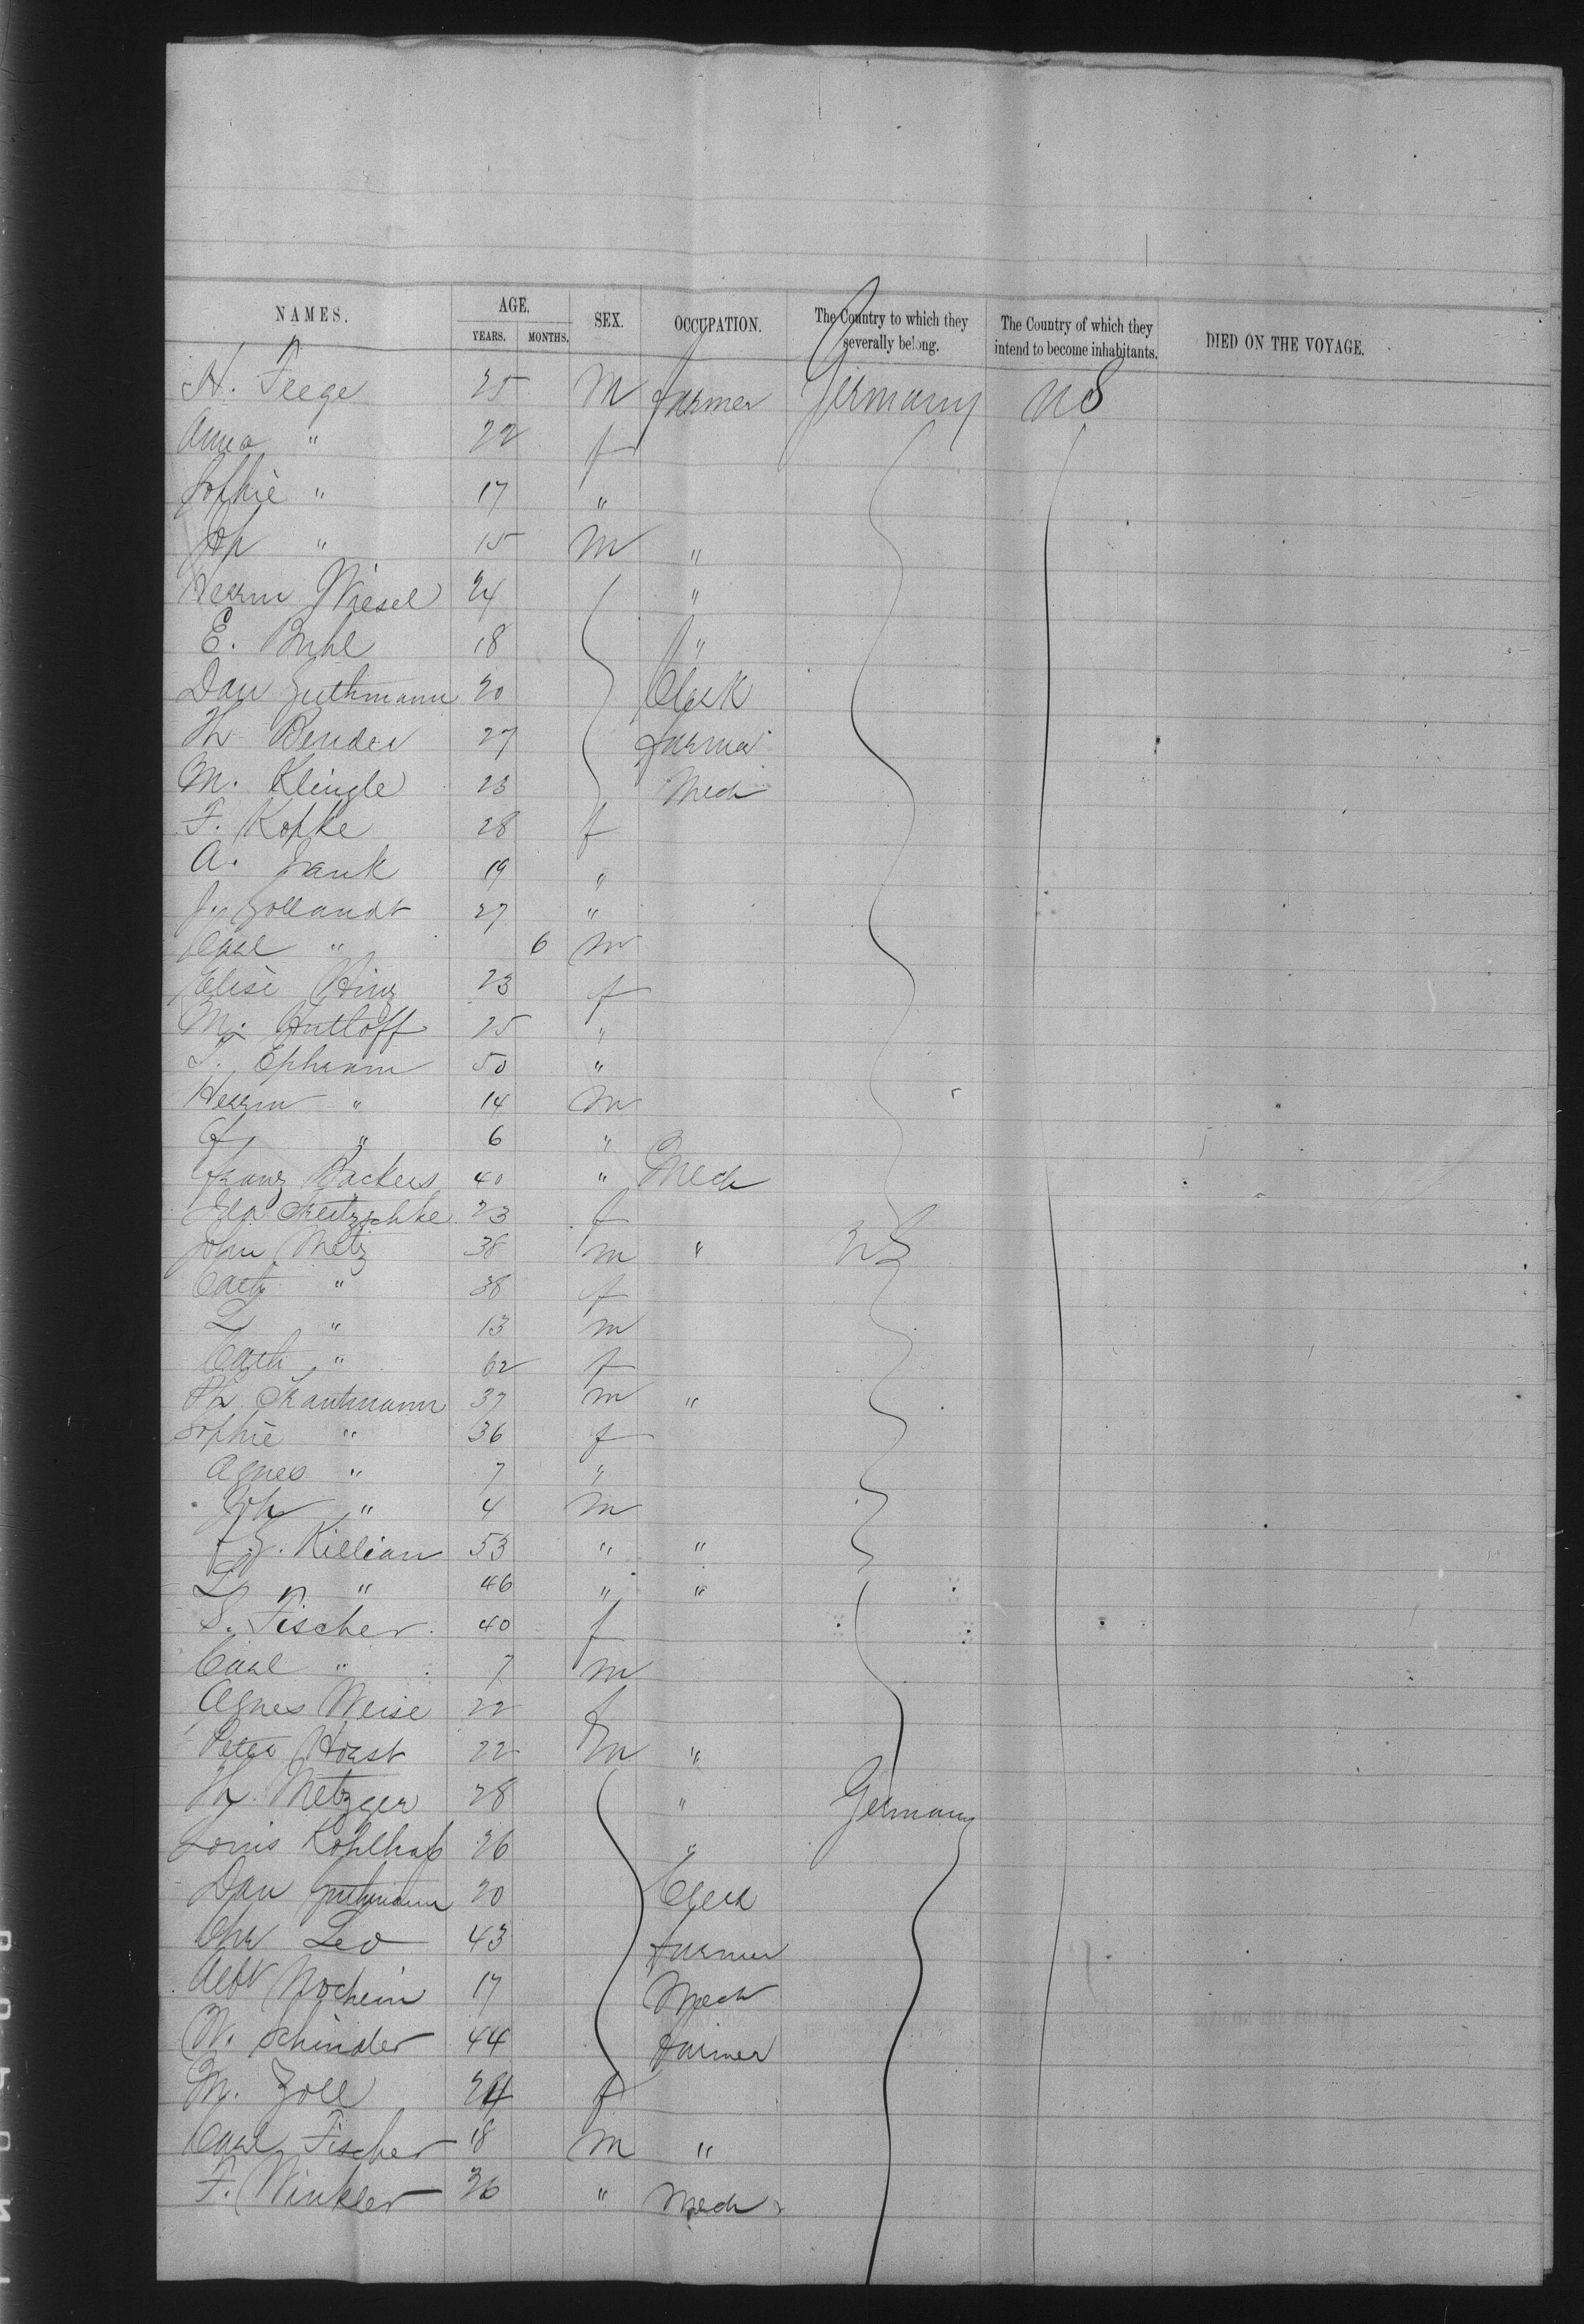 NAMES. AGE. SEX. OCCUPATION. The Country to which they severally belong. The Country of which they intend to become inhabitants. DIED ON THE VOYAGE.
YEARS. MONTHS.
H. Feege 25 M Farmer Germany US
Anna " 22 f
Sophie " 17 "
Joh " 15 M "
Herrm Wiesel 24 "
E. Buhl 18 "
Dan Guthmann 20 Clerk
Th Bender 27 Farmer
M. Klingle 23 Mech
F. Kopke 28 f
A. Frank 19 "
J. Gollandt 27 "
Carl " 6 M
Elise Hinz 23 f
M. Huttoff 25 "
T. Ephraim 50 "
Herrm " 14 M
" 6 "
Franz Backers 40 " Mech
Ida 23 f
John Metz 38 m " US
Cath " 38 f
L " 13 m
Cath " 62 f
Trautmann 37 m "
Sophie " 36 f
Agnes " 7 "
Joh " 4 M
Killian 53 " "
L " 46 " "
S. Fischer 40 f
Carl " 7 M
Agnes Weise 22 f
Peter Horst 22 M "
Metzger 28 " Germany
Louis Kohlhaß 26 "
Dan Guthmann 20 Clerk
Chr Leo 43 Farmer
Albt Nochem 17 Mech
W. Schindler 44 Farmer
M. Zoll 24 f
Carl Fischer 18 M "
F. Winkler 36 " Mech